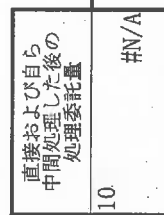 直接および自ら
中間処理した後の
処理委託量
10.
#N/A